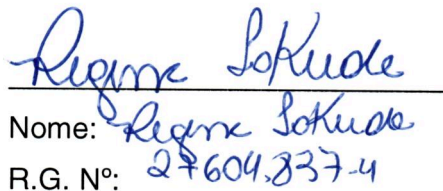 Regina Sokude
Nome: Regina Sokude
R.G. Nº: 27604.837-4